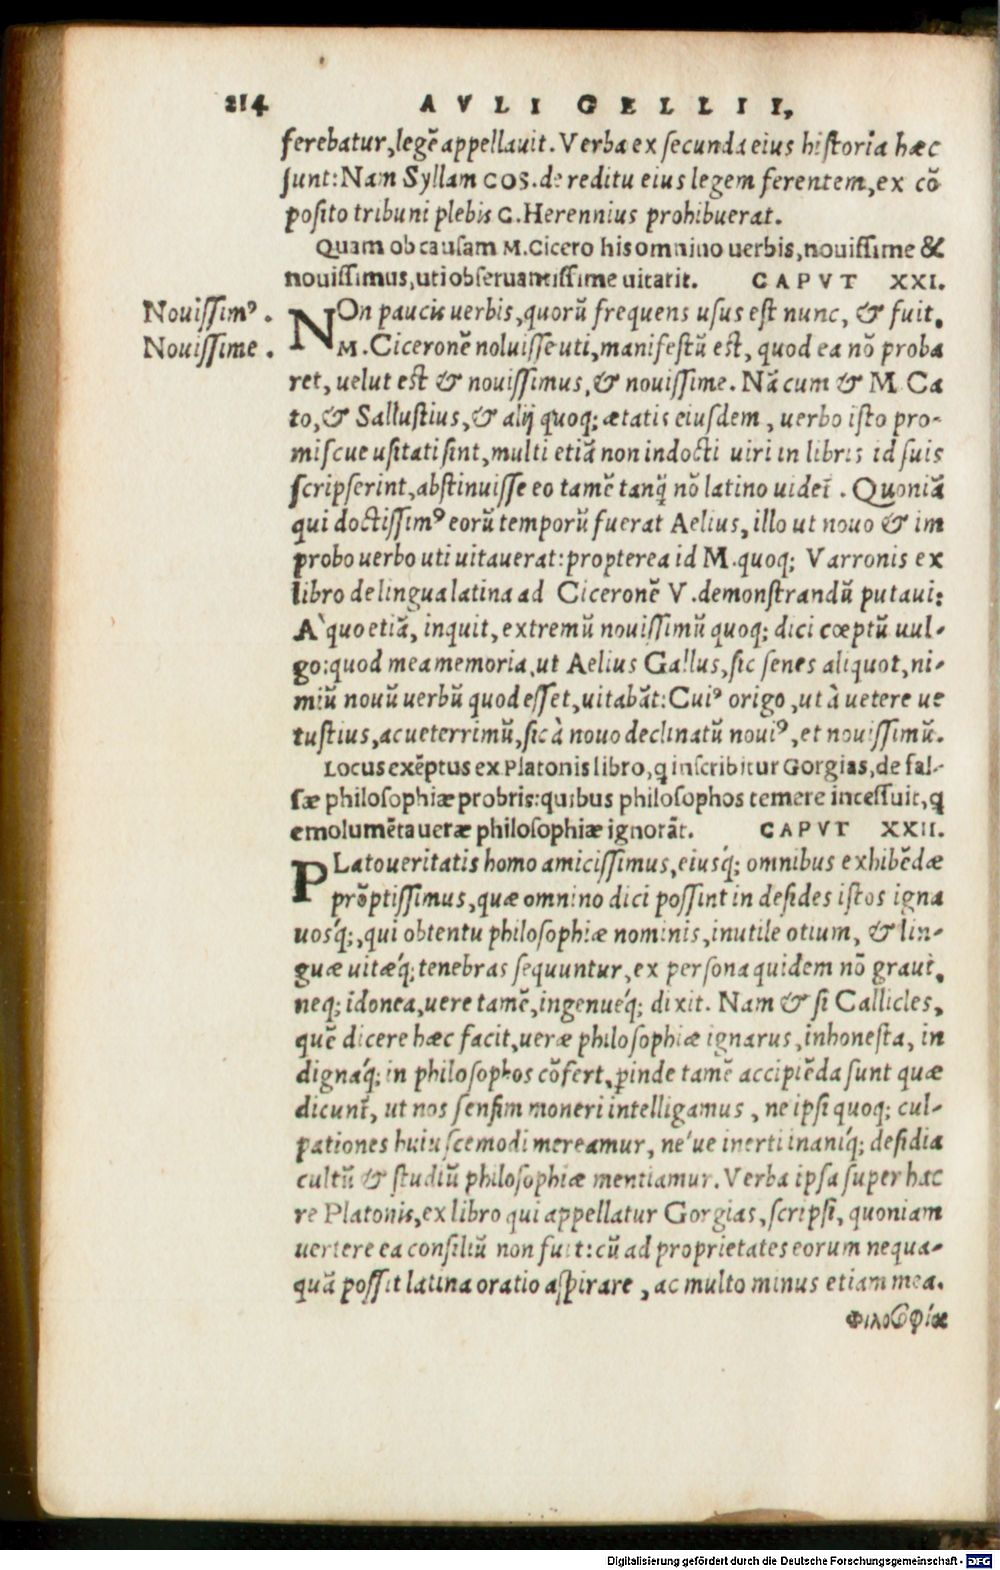 214 AVLI GELLII,
ferebatur, legē appellauit. Verba ex secunda eius historia hæc
sunt: Nam Syllam COS. de reditu eius legem ferentem, ex cō
posito tribuni plebis C. Herennius prohibuerat.
Quam ob causam M. Cicero his omnino uerbis, nouissime &
nouissimus, uti obseruantissime uitarit. CAPVT XXI.
Nouissimꝰ.
Nouissime.
NOn paucis uerbis, quorū frequens usus est nunc, & fuit,
M. Ciceronē noluisse uti, manifestū est, quod ea nō proba
ret, uelut est & nouissimus, & nouissime. Nā cum & M. Ca
to, & Sallustius, & alij quoq; ætatis eiusdem, uerbo isto pro-
miscue usitati sint, multi etiā non indocti uiri in libris id suis
scripserint, abstinuisse eo tamē tanq̄ nō latino uideĩ. Quoniā
qui doctissimꝰ eorū temporū fuerat Aelius, illo ut nouo & im
probo uerbo uti uitauerat: propterea id M. quoq; Varronis ex
libro de lingua latina ad Ciceronē V. demonstrandū putaui:
A' quo etiā, inquit, extremū nouissimū quoq; dici cœptū uul-
go: quod mea memoria, ut Aelius Gallus, sic senes aliquot, ni-
miū nouū uerbū quod esset, uitabāt: Cuiꝰ origo, ut à uetere ue
tustius, ac ueterrimū, sic à nouo declinatū nouiꝰ, et nouissimū.
Locus exēptus ex Platonis libro, q̄ inscribitur Gorgias, de fal-
sæ philosophiæ probris: quibus philosophos temere incessuit, q̄
emolumēta ueræ philosophiæ ignorāt. CAPVT XXII.
PLato ueritatis homo amicissimus, eiusq́; omnibus exhibēdæ
prōptissimus, quæ omnino dici possint in desides istos igna
uosq́;, qui obtentu philosophiæ nominis, inutile otium, & lin-
guæ uitæq́; tenebras sequuntur, ex persona quidem nō graui,
neq; idonea, uere tamē, ingenueq́; dixit. Nam & si Callicles,
quē dicere hæc facit, ueræ philosophiæ ignarus, inhonesta, in
dignaq́; in philosophos cōfert, ꝑinde tamē accipiēda sunt quæ
dicunť, ut nos sensim moneri intelligamus, ne ipsi quoq; cul-
pationes huiuscemodi mereamur, ne'ue inerti inaniq́; desidia
cultū & studiū philosophiæ mentiamur. Verba ipsa super hac
re Platonis, ex libro qui appellatur Gorgias, scripsi, quoniam
uertere ea consiliū non fuit: cū ad proprietates eorum nequa-
quā possit latina oratio aspirare, ac multo minus etiam mea.
Φιλοσοφίας
Digitalisierung gefördert durch die Deutsche Forschungsgemeinschaft - DFG